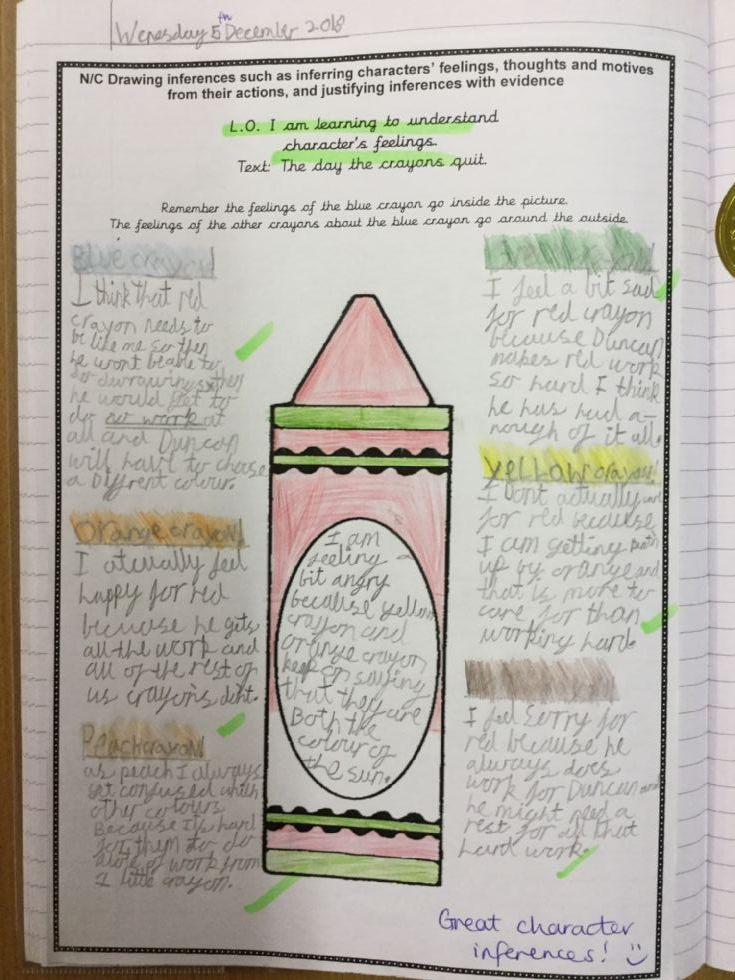 Wenesday 5th December 2018
N/C Drawing inferences such as inferring characters' feelings, thoughts and motives
from their actions, and justifying inferences with evidence
L.O. I am learning to understand
character's feelings.
Text: The day the crayons quit.
Remember the feelings of the blue crayon go inside the picture.
The feelings of the other crayons about the blue crayon go around the outside.
Blue crayon
I think that red
crayon needs to
be like me so then
he wont be able to
do
he would get to
do no work at
all and Duncan
will have to chose
a Diffrent colour.
Orange crayon
I atcually feel
happy for red
because he gets
all the work and
all of the rest of
us crayons dont.
Peach crayon
as peach I always
get confused with
other colours
Because it's hard
for them to do
work from
1 little crayon.
I am
feeling a
bit angry
because yellow
crayon and
orange crayon
keep on saying
that they are
Both the
colour of
the sun.
I feel a bit sad
for red crayon
because Duncan
makes red work
so hard I think
he has had a-
nough of it all.
yellow crayon
I Dont actually care
for red because
I am getting
up by orange and
that is more to
care for than
working hard.
I feel Sorry for
red because he
always does
work for Duncan and
he might need a
rest for all that
hard work.
Great character
inferences!